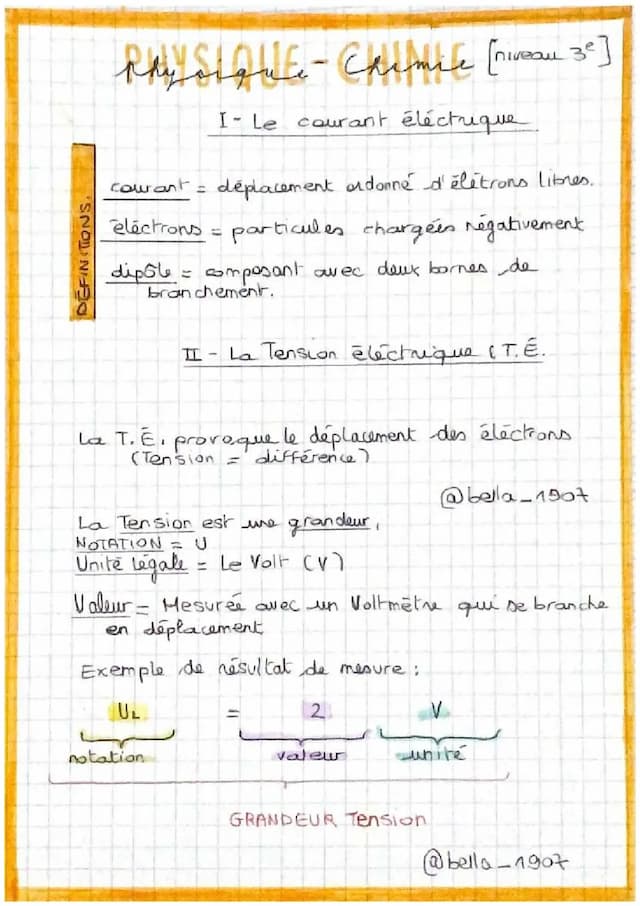 PHYSIQUE - CHIMIE
Physique - Chimie [niveau 3e]
I - Le courant éléctrique
DÉFINITIONS.
courant = déplacement ordonné d'élétrons libres.
éléctrons = particules chargées négativement
dipôle = composant avec deux bornes de
branchement.
II - La Tension éléctrique (T.É.
La T.É. provoque le déplacement des éléctrons
(Tension = différence)
@bella_1907
La Tension est une grandeur.
NOTATION = U
Unité légale = Le Volt (V)
Valeur = Mesurée avec un Voltmètre qui se branche
en déplacement
Exemple de résultat de mesure :
UL = 2 V
notation valeur unité
GRANDEUR Tension
@bella_1907